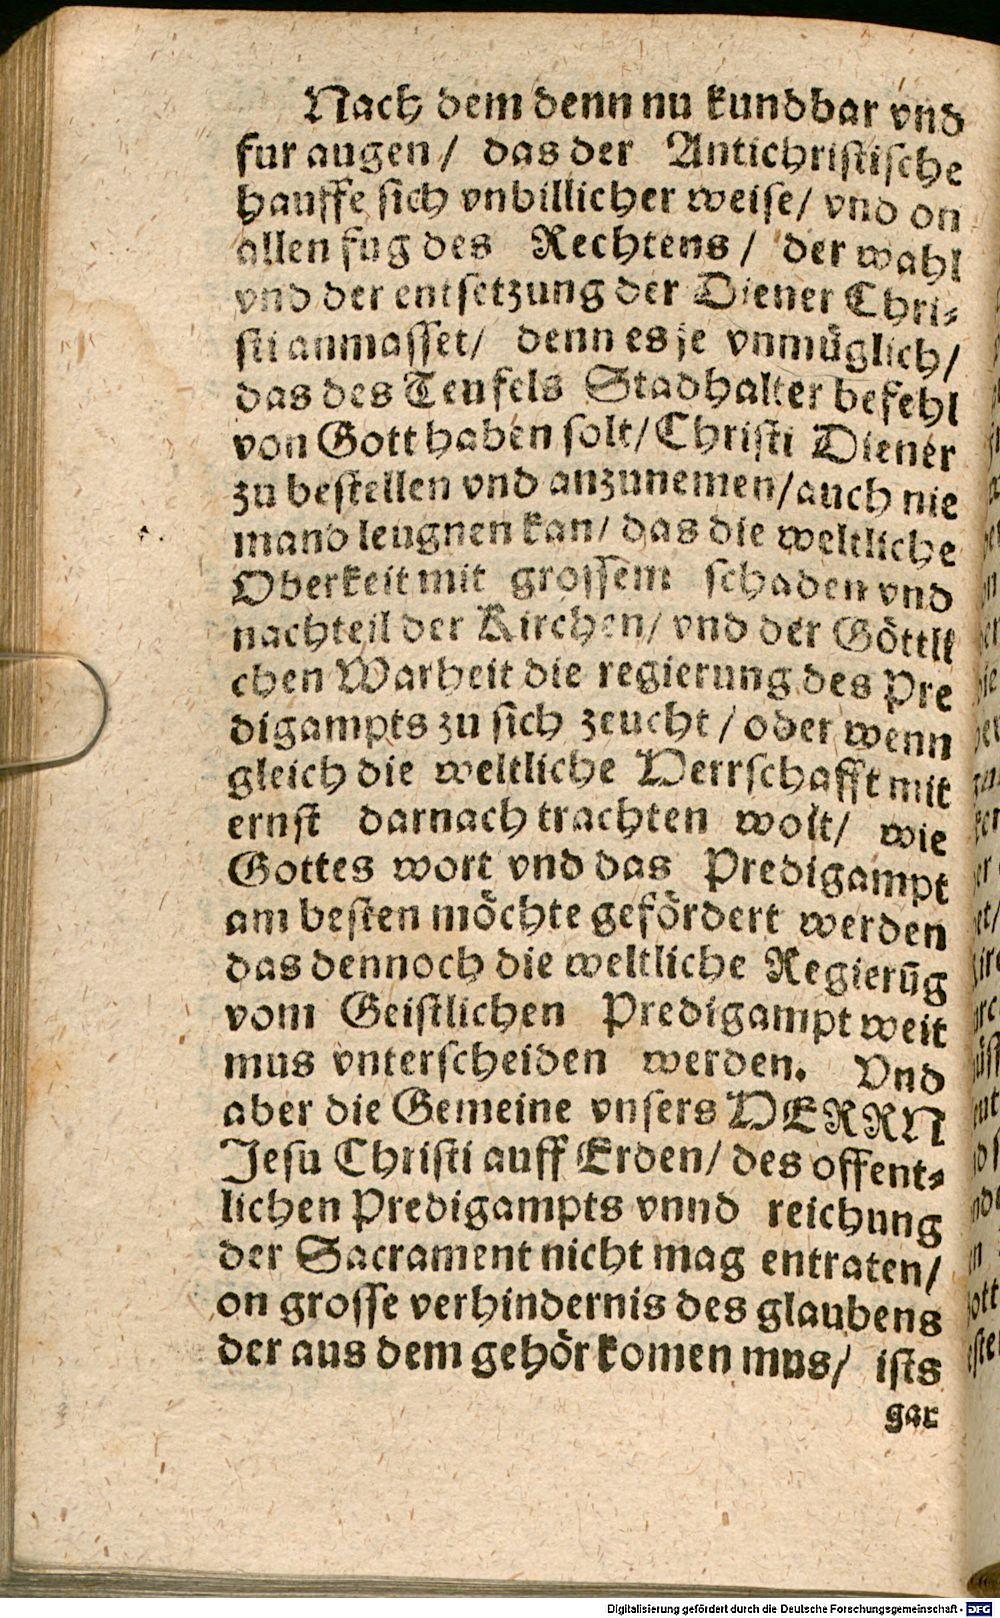 Nach dem denn nu kundbar vnd
fur augen/ das der Antichristische
hauffe sich vnbillicher weise/ vnd on
allen fug des Rechtens/ der wahl
vnd der entsetzung der Diener Chri-
sti anmasset/ denn es je vnmüglich/
das des Teufels Stadhalter befehl
von Gott haben solt/ Christi Diener
zu bestellen vnd anzunemen/ auch nie
mand leugnen kan/ das die weltliche
Oberkeit mit grossem schaden vnd
nachteil der Kirchen/ vnd der Göttli
chen Warheit die regierung des Pre
digampts zu sich zeucht/ oder wenn
gleich die weltliche Herrschafft mit
ernst darnach trachten wolt/ wie
Gottes wort vnd das Predigampt
am besten möchte gefördert werden
das dennoch die weltliche Regierūg
vom Geistlichen Predigampt weit
mus vnterscheiden werden. Vnd
aber die Gemeine vnsers HERRN
Jesu Christi auff Erden/ des offent-
lichen Predigampts vnnd reichung
der Sacrament nicht mag entraten/
on grosse verhindernis des glaubens
der aus dem gehör komen mus/ ists
gar
Digitalisierung gefördert durch die Deutsche Forschungsgemeinschaft - DFG